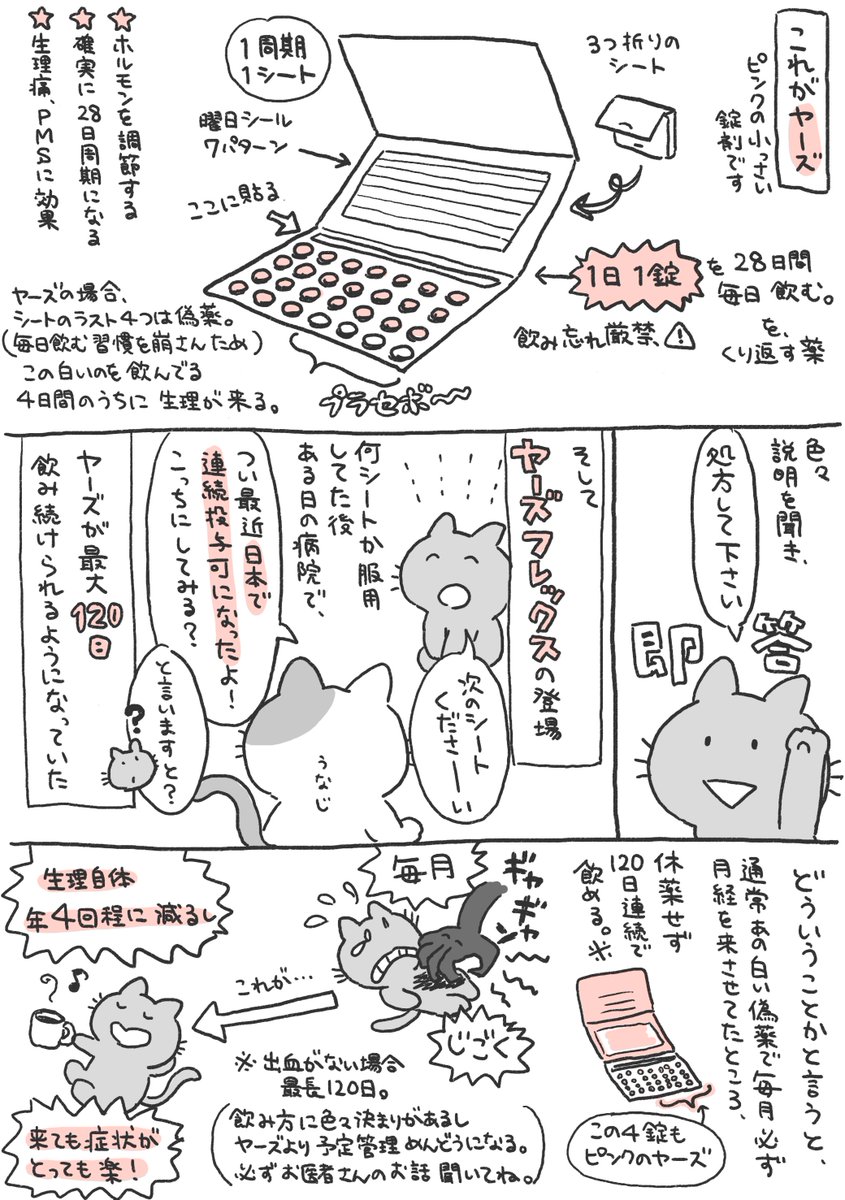 これがヤーズ
ピンクの小っさい
錠剤です
3つ折りの
シート
1周期
1シート
曜日シール
7パターン
ここに貼る
★ホルモンを調節する
★確実に28日周期になる
★生理痛、PMSに効果
1日1錠
を28日間
毎日飲む。
を、
くり返す薬
飲み忘れ厳禁、
ヤーズの場合、
シートのラスト4つは偽薬。
(毎日飲む習慣を崩さんため)
この白いのを飲んでる
4日間のうちに生理が来る。
プラセボ〜〜
色々
説明を聞き、
処方して下さい
即答
そして
ヤーズフレックスの登場
何シートか服用
してた後
ある日の病院で、
次のシート
くださーーい
つい最近日本で
連続投与可になったよ!
こっちにしてみる?
うなじ
と言いますと?
?
ヤーズが最大120日
飲み続けられるようになっていた
どういうことかと言うと、
通常あの白い偽薬で毎月必ず
月経を来させてたところ、
休薬せず
120日連続で
飲める。※
この4錠も
ピンクのヤーズ
毎月
ギャギャ
じごく
これが…
生理自体
年4回程に減るし
♪
来ても症状が
とっても楽!
※出血がない場合
最長120日。
(飲み方に色々決まりがあるし
ヤーズより予定管理めんどうになる。
必ずお医者さんのお話聞いてね。)